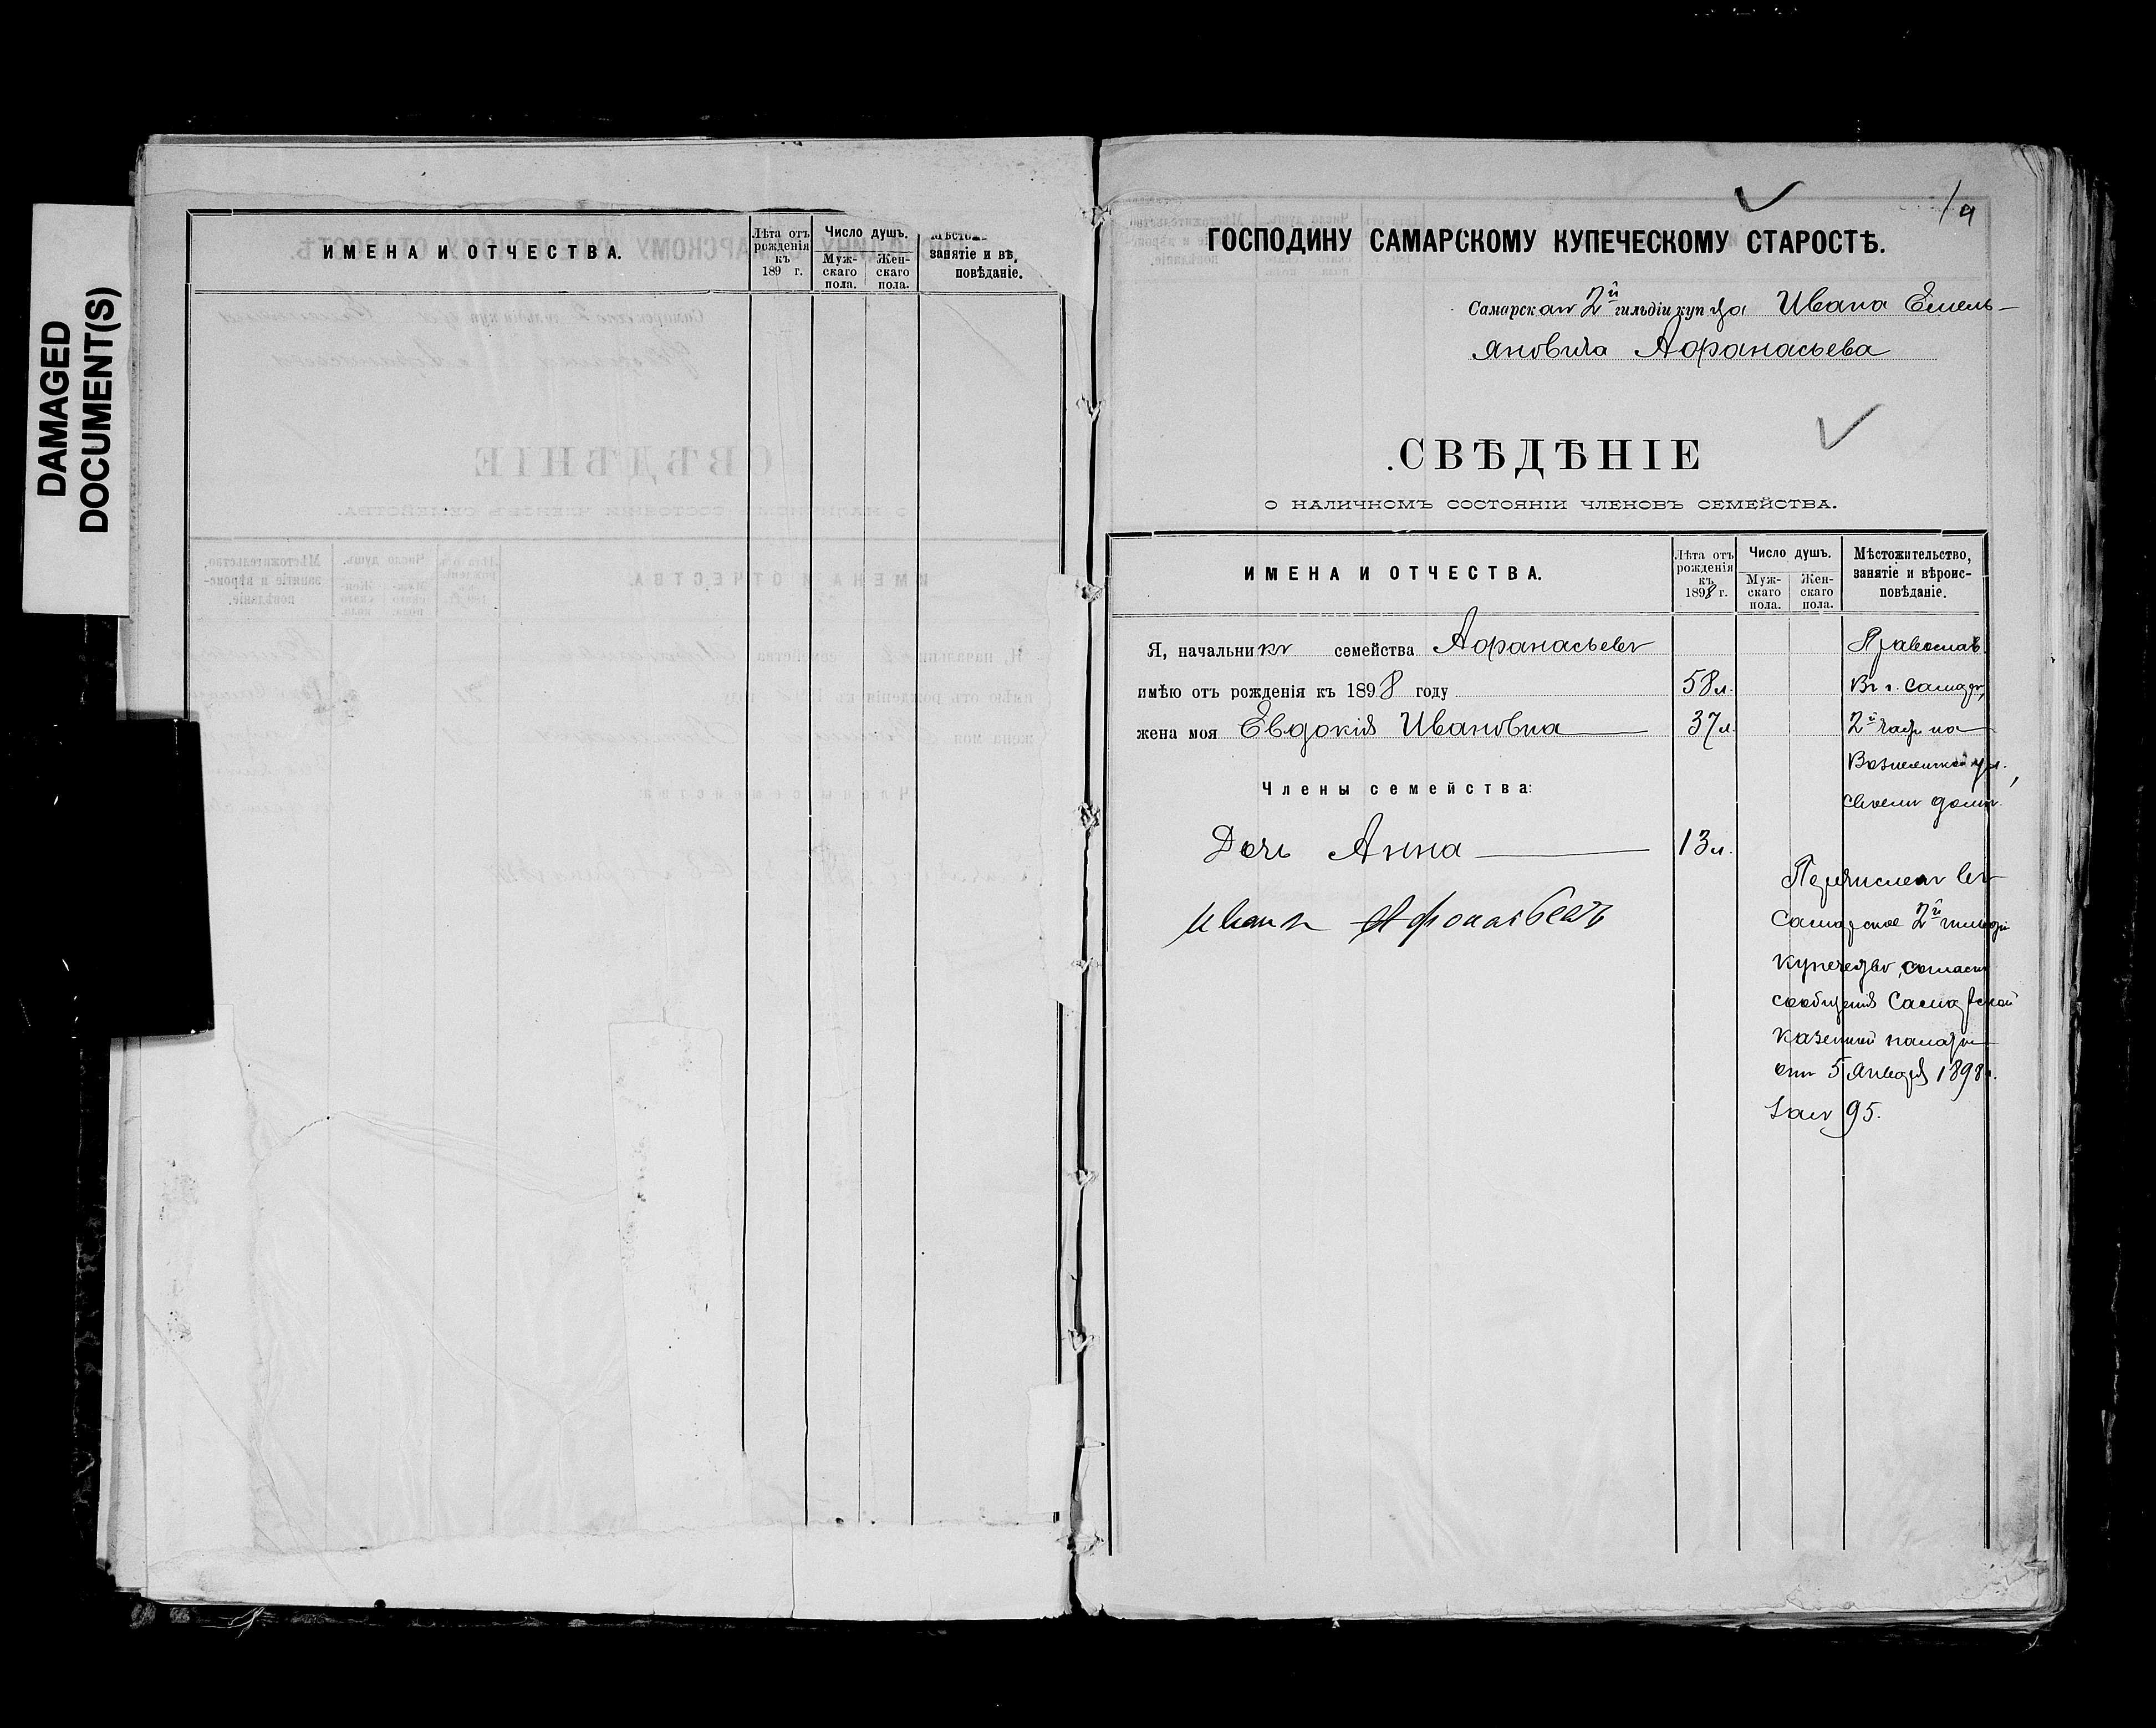 DAMAGED
DOCUMENT(S)
ИМЕНА И ОТЧЕСТВА.
Лѣта отъ
рожденія
къ
189 г.
Число душъ.
Муж-
скаго
пола.
Жен-
скаго
пола.
занятіе и вѣ
повѣданіе.
ГОСПОДИНУ САМАРСКОМУ КУПЕЧЕСКОМУ СТАРОСТѢ.
Самарскаго 2й гильдіи купца Ивана Емель-
яновича Афанасьева
СВѢДѢНІЕ
О НАЛИЧНОМЪ СОСТОЯНІИ ЧЛЕНОВЪ СЕМЕЙСТВА.
ИМЕНА И ОТЧЕСТВА.
Лѣта отъ
рожденія
къ
1898 г.
Число душъ.
Муж-
скаго
пола.
Жен-
скаго
пола.
Мѣстожительство,
занятіе и вѣроис-
повѣданіе.
Я, начальникъ семейства Афанасьевъ
Православ.
имѣю отъ рожденія къ 1898 году 58 л.
Въ г. Самарѣ,
жена моя Евдокія Ивановна 37 л.
2й части на
Вознесенской ул.,
своемъ домѣ.
Члены семейства:
Дочь Анна 13 л.
Иванъ Афонасьевъ
Перечисленъ въ
Самарское 2й гильдіи
купечество, согласно
сообщенія Самарской
Казенной палаты
отъ 5 Января 1898 г.
за № 95.